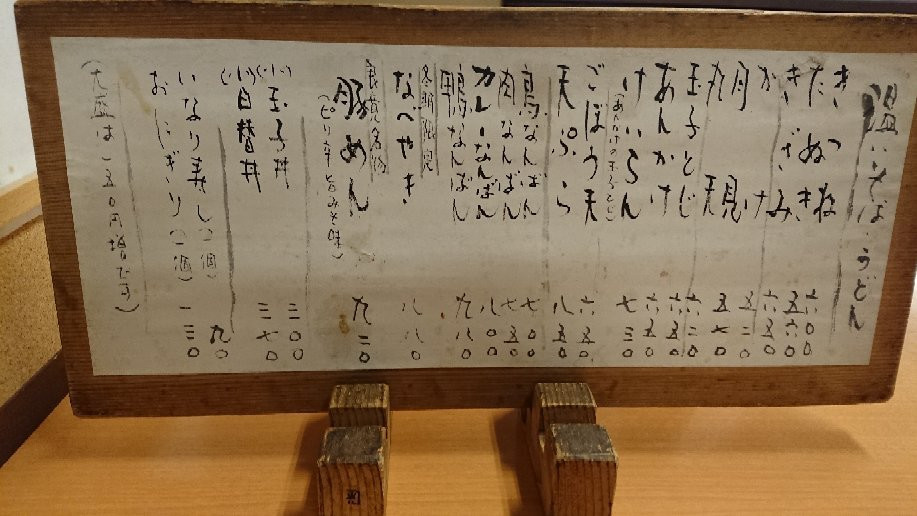 温いそば・うどん
きつね 六〇〇
たぬき 五六〇
きざみ 六五〇
かけ 五二〇
月見 五七〇
丸天 六二〇
玉子とじ 六五〇
あんかけ 六五〇
けいらん 七三〇
(あんかけの玉子とじ)
ごぼう天 六五〇
天ぷら 八五〇
鳥なんばん 七〇〇
肉なんばん 七五〇
カレーなんばん 八〇〇
鴨なんばん 九八〇
冬期限定
なべやき 八八〇
名物
豚めん 九三〇
(ピリ辛 旨みそ味)
(小)玉子丼 三〇〇
(小)日替丼 三七〇
いなり寿し(一個) 九〇
おにぎり(二個) 一三〇
(大盛は一五〇円増です)